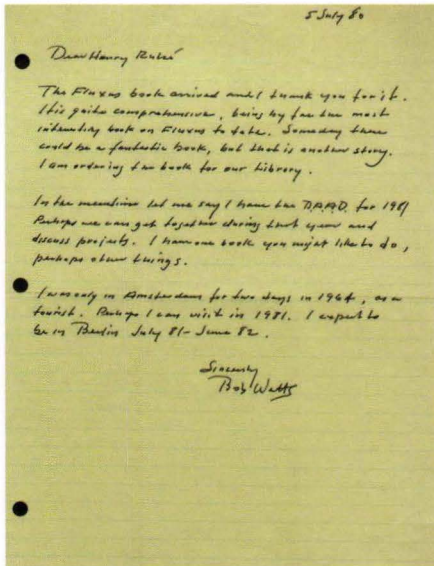 5 July 80
Dear Henry Ruhé
The Fluxus book arrived and I thank you for it.
It is quite comprehensive, being by far the most
interesting book on Fluxus to date. Someday there
could be a fantastic book, but that is another story.
I am ordering the book for our Library.
In the meantime let me say I have the D.A.A.D. for 1981
Perhaps we can get together during that year and
discuss projects. I have one book you might like to do,
perhaps other things.
I was only in Amsterdam for two days in 1964, as a
tourist. Perhaps I can visit in 1981. I expect to
be in Berlin July 81 - June 82.
Sincerely
Bob Watts